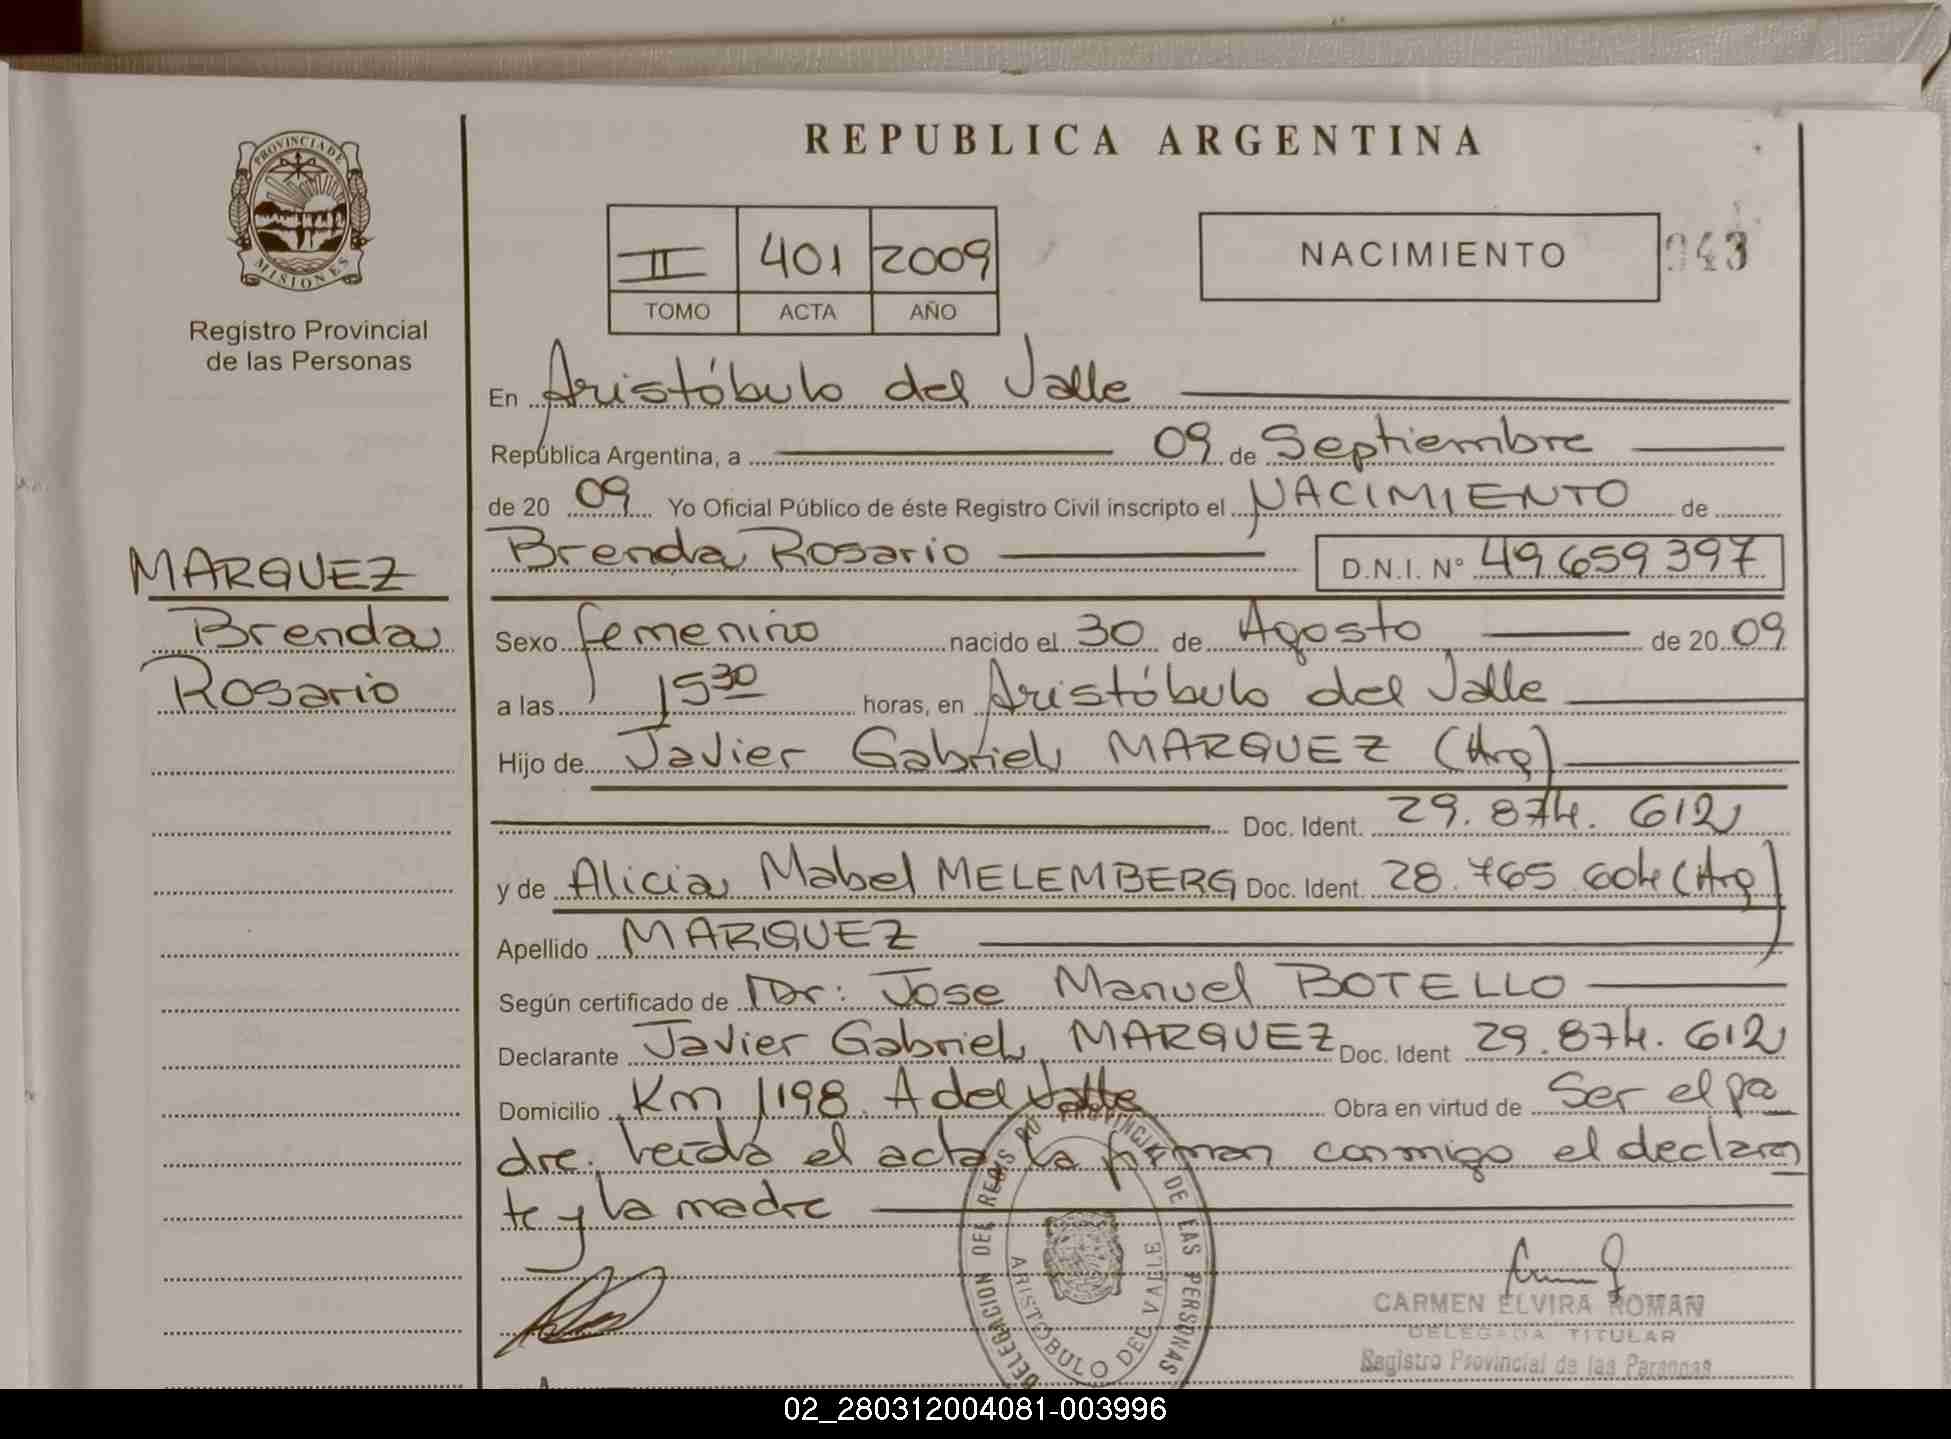 REPUBLICA ARGENTINA
PROVINCIA DE MISIONES
Registro Provincial
de las Personas
II 401 2009
TOMO ACTA AÑO
NACIMIENTO
943
En Aristóbulo del Valle
República Argentina, a 09 de Septiembre
de 20 09 Yo Oficial Público de éste Registro Civil inscripto el NACIMIENTO de
Brenda Rosario D.N.I. N° 49 659 397
MARQUEZ
Brenda
Rosario
Sexo femenino nacido el 30 de Agosto de 20 09
a las 15 30 horas, en Aristóbulo del Valle
Hijo de Javier Gabriel MARQUEZ (Arg)
Doc. Ident. 29.874.612
y de Alicia Mabel MELEMBERG Doc. Ident. 28.765.604 (Arg)
Apellido MARQUEZ
Según certificado de Dr: Jose Manuel BOTELLO
Declarante Javier Gabriel MARQUEZ Doc. Ident 29.874.612
Domicilio Km 1198 A del Valle Obra en virtud de Ser el pa
dre. Leída el acta la firman conmigo el declaran
te y la madre
DELEGACION DEL REGIS RO PROVINCIAL DE LAS PERSONAS
ARISTOBULO DEL VALLE
CARMEN ELVIRA ROMAN
DELEGADA TITULAR
Registro Provincial de las Personas
02_280312004081-003996